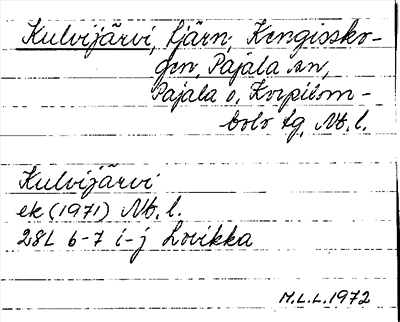 Kulvijärvi, tjärn; Kengissko-
gen, Pajala sn,
Pajala o. Korpilom-
bolo tg, Nb. l.
Kulvijärvi
ek (1971) Nb. l.
28L 6-7 i-j Lovikka
M.L.L. 1972